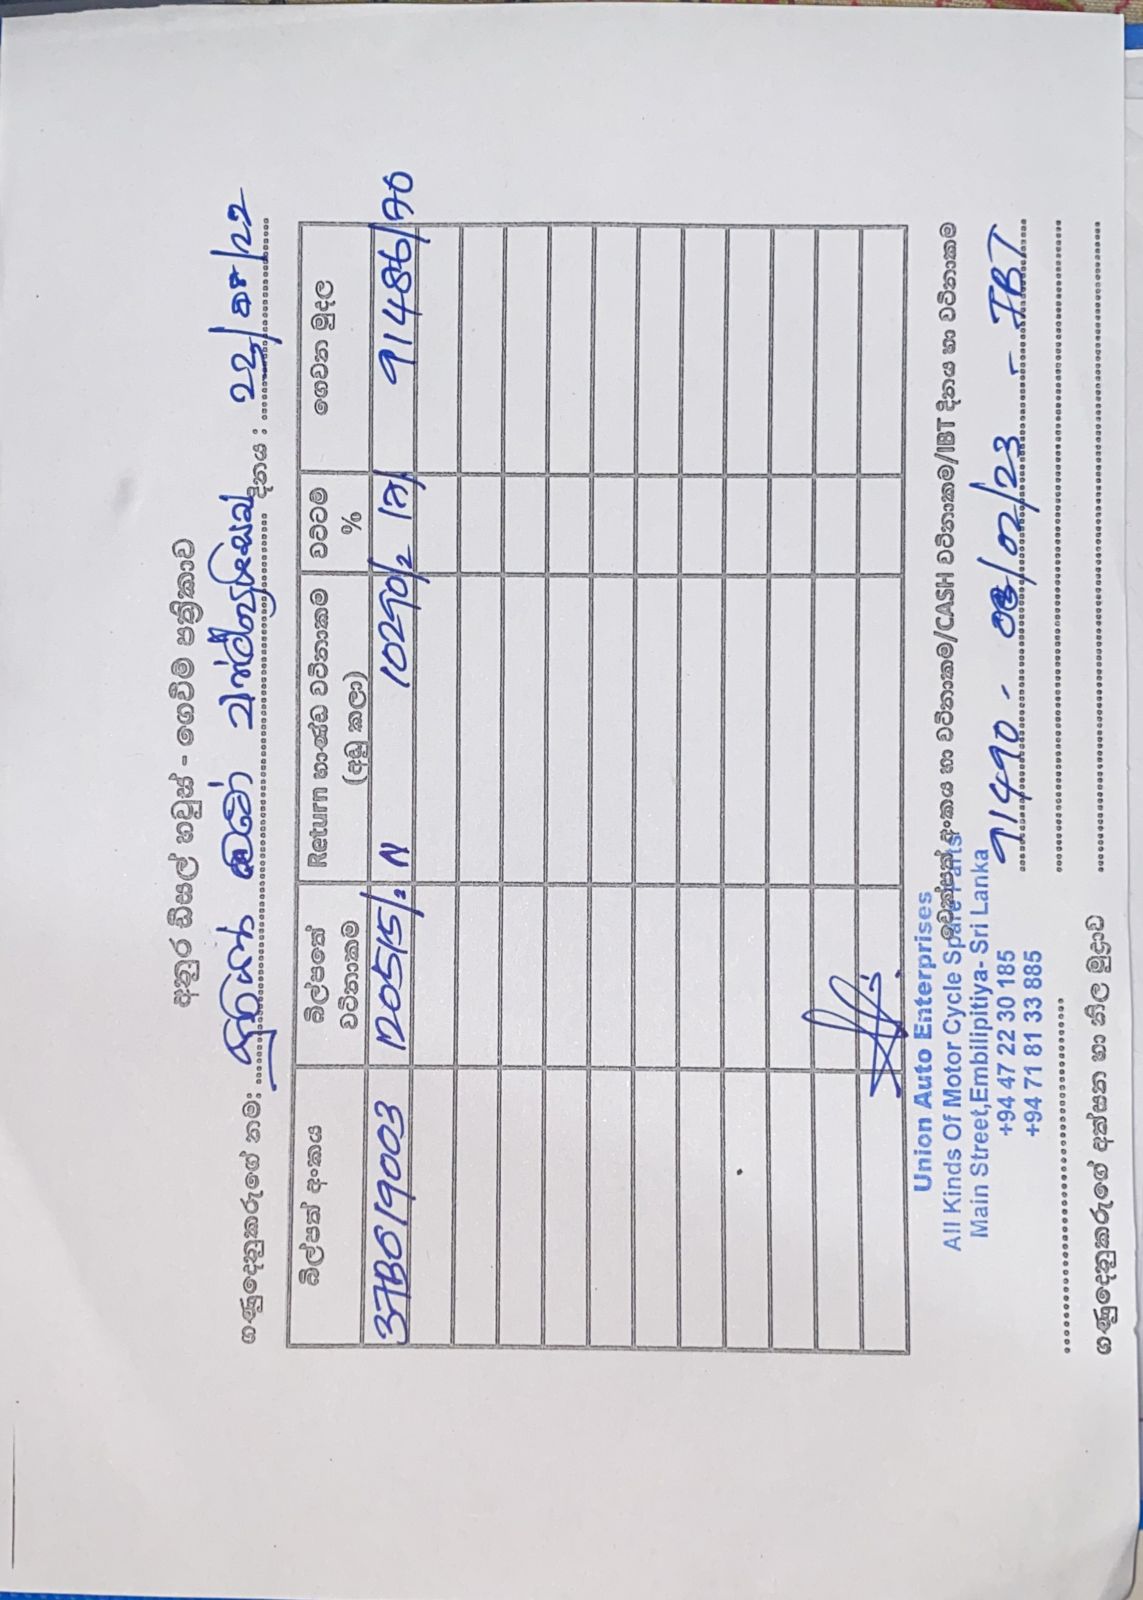 අනුර ඩීසල් හවුස් - ගෙවීම් පත්‍රිකාව
ගණුදෙනුකරුගේ නම: යුනියන් ඔටෝ දිනය :
බිල්පත් අංකය බිල්පතේ වටිනාකම Return භාණ්ඩ වටිනාකම (අඩු කලා) වට්ටම % ගෙවන මුදල
37B019003 120515/= N 10290/= 17/ 91486/70
චෙක්පත් අංකය හා වටිනාකම/CASH වටිනාකම/IBT දිනය හා වටිනාකම
Union Auto Enterprises
All Kinds Of Motor Cycle Spare Parts
Main Street,Embilipitiya- Sri Lanka
+94 47 22 30 185
+94 71 81 33 885
91490 - 03/02/23 - IBT
ගණුදෙනුකරුගේ අත්සන හා නිල මුද්‍රාව